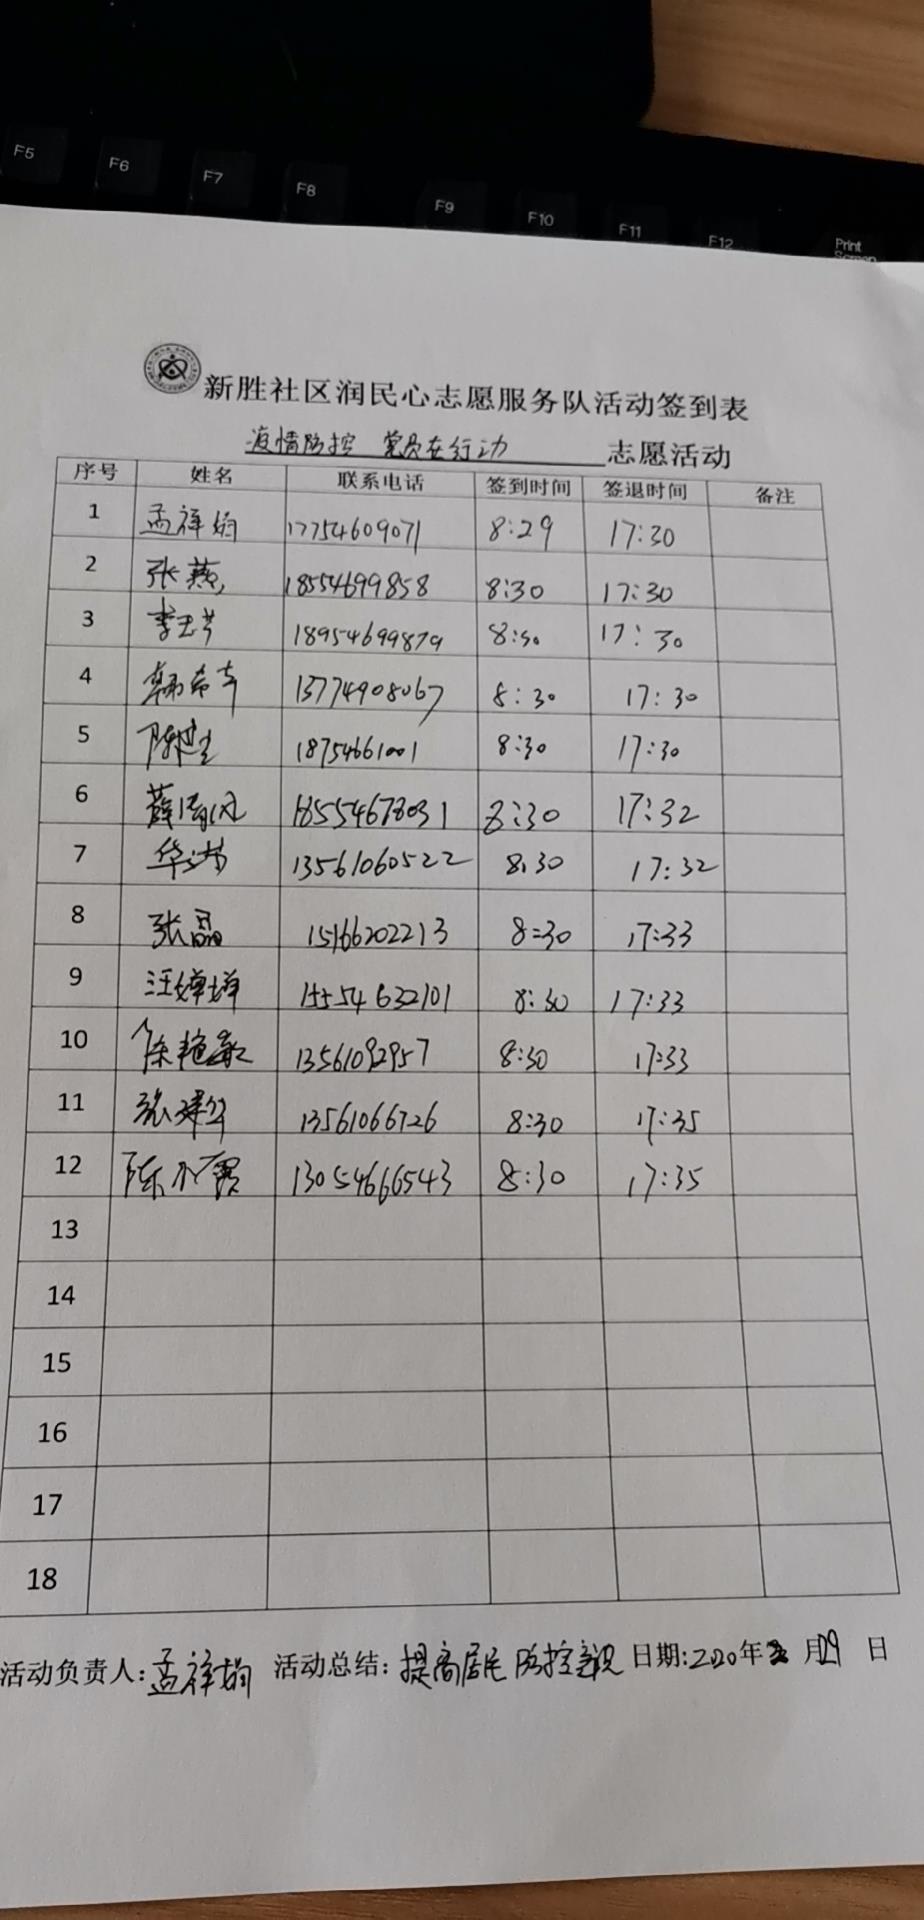 F5 F6 F7 F8 F9 F10 F11 F12 Print Screen
新胜社区润民心志愿服务队活动签到表
疫情防控 党员在行动 志愿活动
序号 姓名 联系电话 签到时间 签退时间 备注
1 孟祥娟 17754609071 8:29 17:30
2 张燕 18554699858 8:30 17:30
3 李玉芳 18954699879 8:30 17:30
4 韩 13774908067 8:30 17:30
5 陈 18754661001 8:30 17:30
6 薛清风 8:30 17:32
7 华 13561060522 8:30 17:32
8 张晶 15166202213 8:30 17:33
9 汪婷婷 15554632101 8:30 17:33
10 徐艳敏 13561092957 8:30 17:33
11 张建华 13561066726 8:30 17:35
12 陈小霞 13054666543 8:30 17:35
13
14
15
16
17
18
活动负责人:孟祥娟 活动总结:提高居民防控意识 日期:2020年2月29日